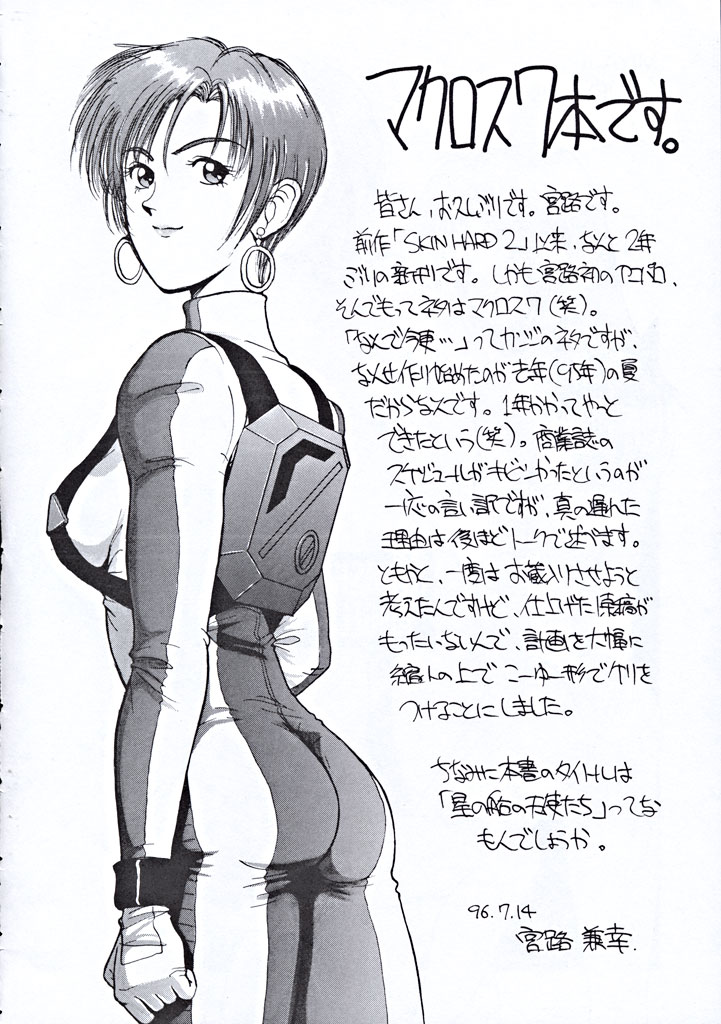 マクロス7本です。
皆さん、お久しぶりです。宮路です。
前作「SKIN HARD 2」以来、なんと2年
ぶりの新刊です。しかも宮路初のアニパロ、
そんでもってネタはマクロス7(笑)。
「なんで今更…」ってカンジのネタですが、
なんせ作り始めたのが去年('95年)の夏
だからなんです。1年かかってやっと
できたという(笑)。商業誌の
スケジュールがキビシかったというのが
一応の言い訳ですが、真の遅れた
理由は後ほどトークで述べます。
ともかく、一度はお蔵入りさせようと
考えたんですけど、仕上げた原稿が
もったいないんで、計画を大幅に
縮小の上でこーゆー形でケリを
つけることにしました。
ちなみに本書のタイトルは
「星の船の天使たち」ってな
もんでしょうか。
96.7.14
宮路 兼幸.